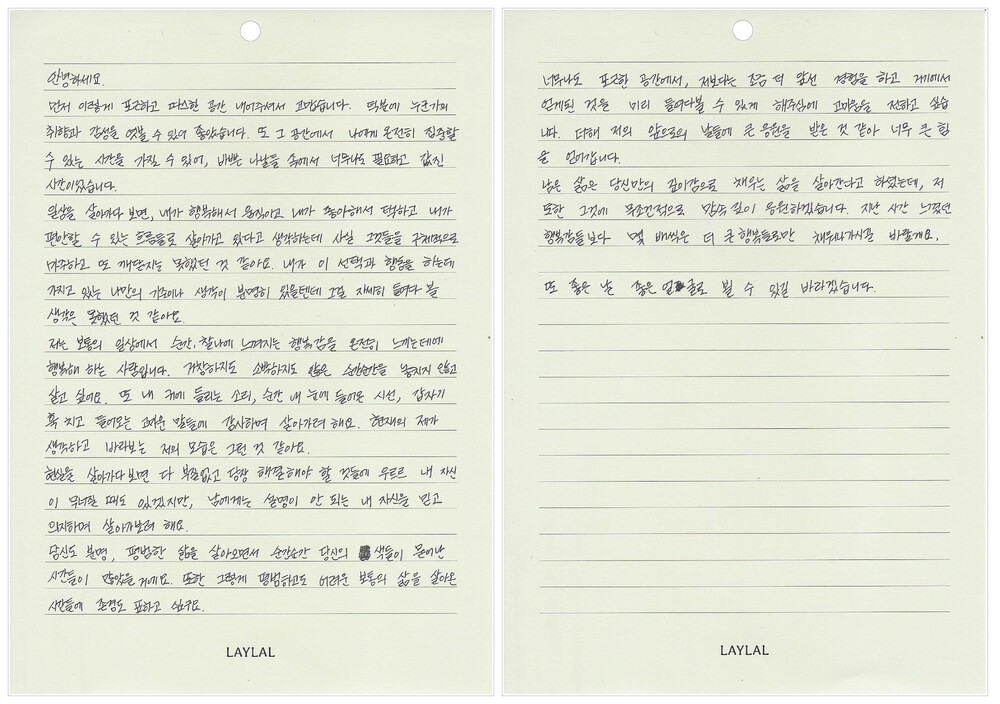 안녕하세요.
먼저 이렇게 포근하고 따스한 공간 내어주셔서 고맙습니다. 덕분에 누군가의
취향과 감성을 엿볼 수 있어 좋았습니다. 또 그 공간에서 나에게 온전히 집중할
수 있는 시간을 가질 수 있어, 바쁜 나날들 속에서 너무나도 필요하고 값진
시간이었습니다.
일상을 살아가다 보면, 내가 행복해서 움직이고 내가 좋아해서 택하고 내가
편안할 수 있는 흐름들로 살아가고 있다고 생각하는데 사실 그것들을 구체적으로
마주하고 또 깨닫지는 못했던 것 같아요. 내가 이 선택과 행동을 하는데
가지고 있는 나만의 기준이나 생각이 분명히 있을텐데 그걸 자세히 들여다 볼
생각은 못했던 것 같아요.
저는 보통의 일상에서 순간, 찰나에 느껴지는 행복감을 온전히 느끼는데에
행복해 하는 사람입니다. 거창하지도 소박하지도 않은 순간순간을 놓치지 않고
살고 싶어요. 또 내 귀에 들리는 소리, 순간 내 눈에 들어온 시선, 갑자기
훅 치고 들어오는 고마운 말들에 감사하며 살아가려 해요. 현재의 제가
생각하고 바라보는 저의 모습은 그런 것 같아요.
현실을 살아가다보면 다 부질없고 당장 해결해야 할 것들에 우르르 내 자신
이 무너질 때도 있겠지만, 남에게는 설명이 안 되는 내 자신을 믿고
의지하며 살아가보려 해요.
당신도 분명, 평범한 삶을 살아오면서 순간순간 당신의 색들이 묻어난
시간들이 많았을 거에요. 또한 그렇게 평범하고도 어려운 보통의 삶을 살아온
시간들에 존경도 표하고 싶구요.
LAYLAL
너무나도 포근한 공간에서, 저보다는 조금 더 앞선 경험을 하고 거기에서
얻게된 것을 미리 들여다볼 수 있게 해주심에 고마움을 전하고 싶습
니다. 더해 저의 앞으로의 날들에 큰 응원을 받은 것 같아 너무 큰 힘
을 얻어갑니다.
남은 삶은 당신만의 깊이감으로 채우는 삶을 살아간다고 하였는데, 저
또한 그것에 무조건적으로 맘속 깊이 응원하겠습니다. 지난 시간 느꼈던
행복감들보다 몇 배씩은 더 큰 행복들로만 채워나가시길 바랄게요.
또 좋은 날 좋은 얼굴로 뵐 수 있길 바라겠습니다.
LAYLAL